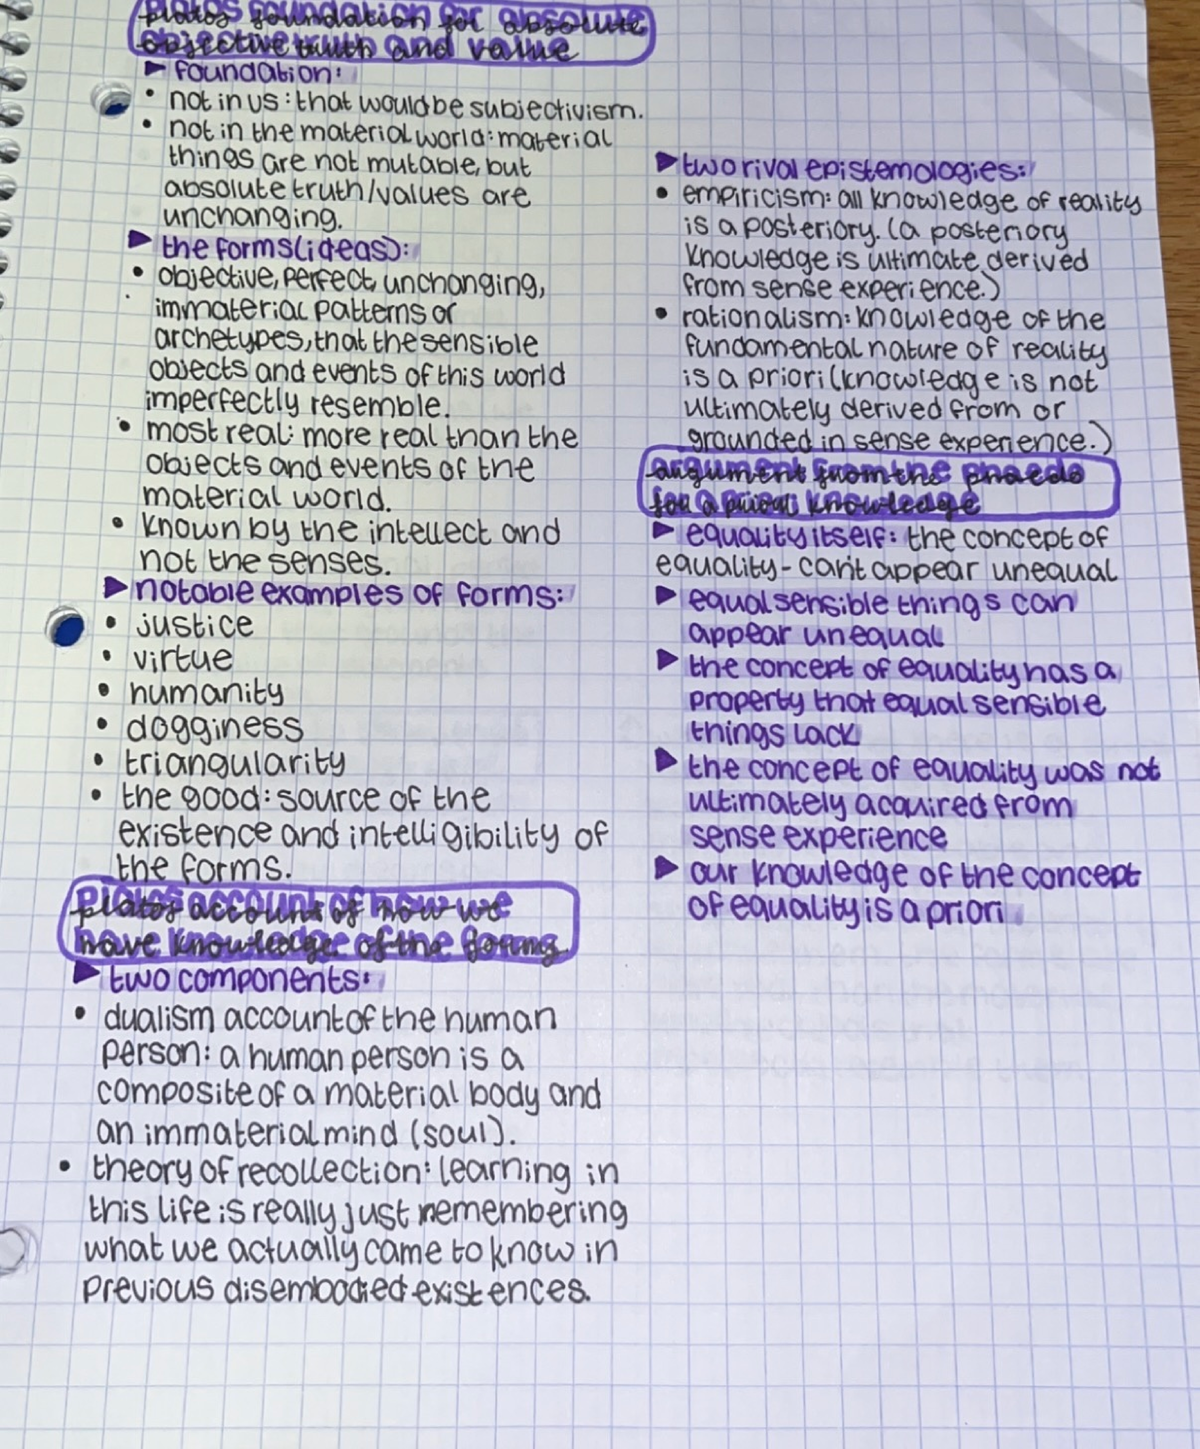 platos foundation for absolute
objective truth and value
▶ foundation:
• not in us: that would be subjectivism.
• not in the material world: material
things are not mutable, but
absolute truth/values are
unchanging.
▶ the forms (ideas):
• objective, perfect, unchanging,
immaterial patterns or
archetypes, that the sensible
objects and events of this world
imperfectly resemble.
• most real: more real than the
objects and events of the
material world.
• known by the intellect and
not the senses.
▶ notable examples of forms:
• justice
• virtue
• humanity
• dogginess
• triangularity
• the good: source of the
existence and intelligibility of
the forms.
platos account of how we
have knowledge of the forms
▶ two components:
• dualism account of the human
person: a human person is a
composite of a material body and
an immaterial mind (soul).
• theory of recollection: learning in
this life is really just remembering
what we actually came to know in
previous disembodied existences.
▶ two rival epistemologies:
• empiricism: all knowledge of reality
is a posteriory. (a posteriory
knowledge is ultimate derived
from sense experience.)
• rationalism: knowledge of the
fundamental nature of reality
is a priori (knowledge is not
ultimately derived from or
grounded in sense experience.)
argument from the phaedo
for a priori knowledge
▶ equality itself: the concept of
equality - can't appear unequal
▶ equal sensible things can
appear unequal
▶ the concept of equality has a
property that equal sensible
things lack
▶ the concept of equality was not
ultimately acquired from
sense experience
▶ our knowledge of the concept
of equality is a priori